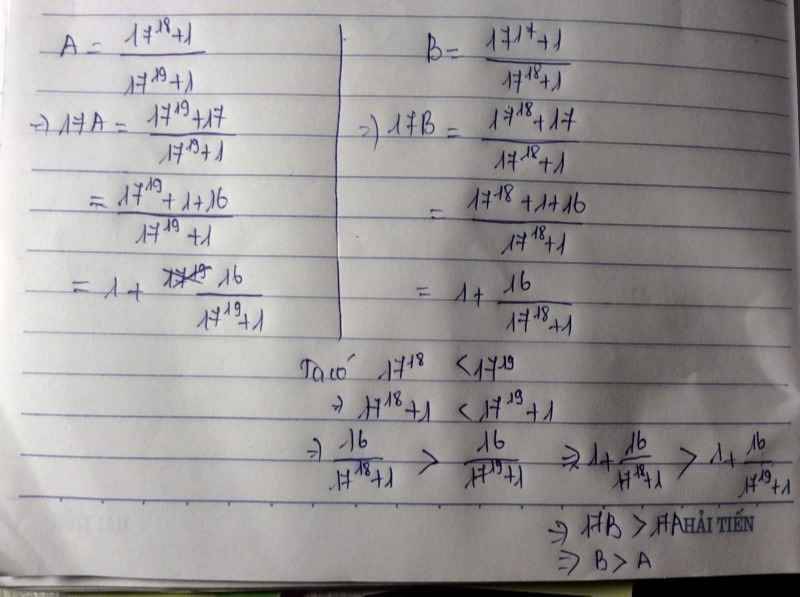 A = (17^18+1)/(17^19+1)
⇒ 17A = (17^19+17)/(17^19+1)
= (17^19+1+16)/(17^19+1)
= 1 + 16/(17^19+1)
B = (17^17+1)/(17^18+1)
⇒ 17B = (17^18+17)/(17^18+1)
= (17^18+1+16)/(17^18+1)
= 1 + 16/(17^18+1)
Ta có 17^18 < 17^19
⇒ 17^18+1 < 17^19+1
⇒ 16/(17^18+1) > 16/(17^19+1) ⇒ 1+16/(17^18+1) > 1+16/(17^19+1)
⇒ 17B > 17A HẢI TIẾN
⇒ B > A